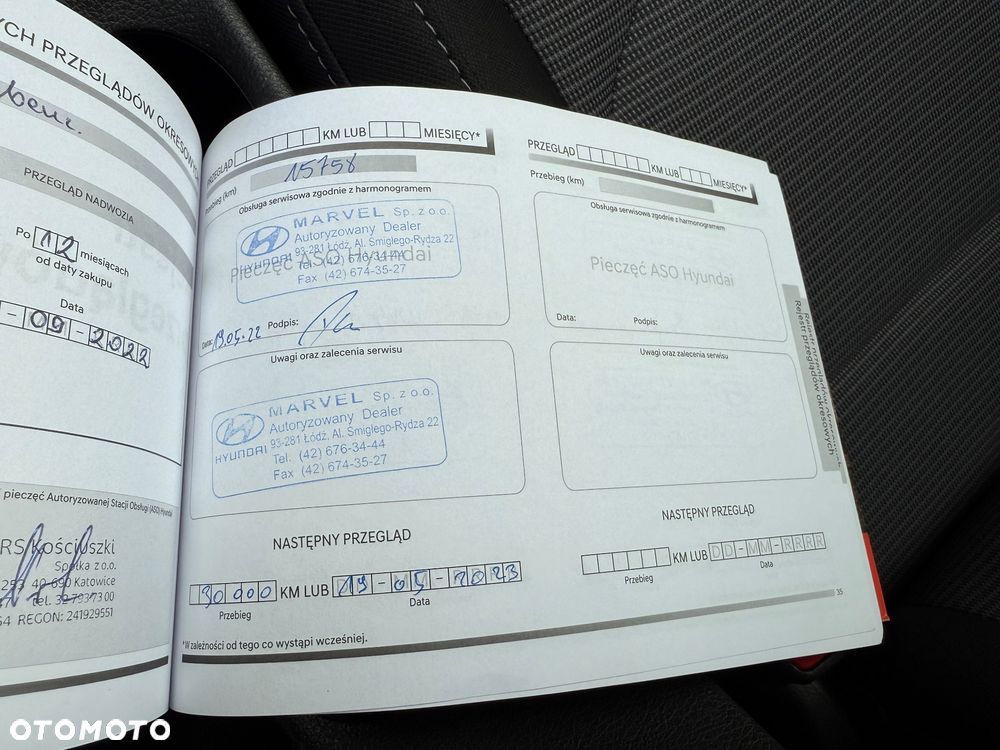 YCH PRZEGLĄDÓW OKRESOWYCH
benz.
PRZEGLĄD NADWOZIA
Po 12 miesiącach
od daty zakupu
Data
-09-2022
pieczęć Autoryzowanej Stacji Obsługi (ASO) Hyundai
RS Kościuszki
Spółka z o.o.
253 40-690 Katowice
tel. 32 793 73 00
64 REGON: 241929551
PRZEGLĄD KM LUB MIESIĘCY*
Przebieg (km) 15758
Obsługa serwisowa zgodnie z harmonogramem
Pieczęć ASO Hyundai
HYUNDAI
MARVEL Sp. z o.o.
Autoryzowany Dealer
93-281 Łódź, Al. Śmigłego-Rydza 22
Tel. (42) 676-34-44
Fax (42) 674-35-27
Data: 19.05.22 Podpis:
Uwagi oraz zalecenia serwisu
HYUNDAI
MARVEL Sp. z o.o.
Autoryzowany Dealer
93-281 Łódź, Al. Śmigłego-Rydza 22
Tel. (42) 676-34-44
Fax (42) 674-35-27
NASTĘPNY PRZEGLĄD
30 000 KM LUB 19-05-2023
Przebieg Data
*W zależności od tego co wystąpi wcześniej.
PRZEGLĄD KM LUB MIESIĘCY*
Przebieg (km)
Obsługa serwisowa zgodnie z harmonogramem
Pieczęć ASO Hyundai
Data: Podpis:
Uwagi oraz zalecenia serwisu
NASTĘPNY PRZEGLĄD
KM LUB DD-MM-RRRR
Przebieg Data
35
Rejestr przeglądów okresowych
OTOMOTO